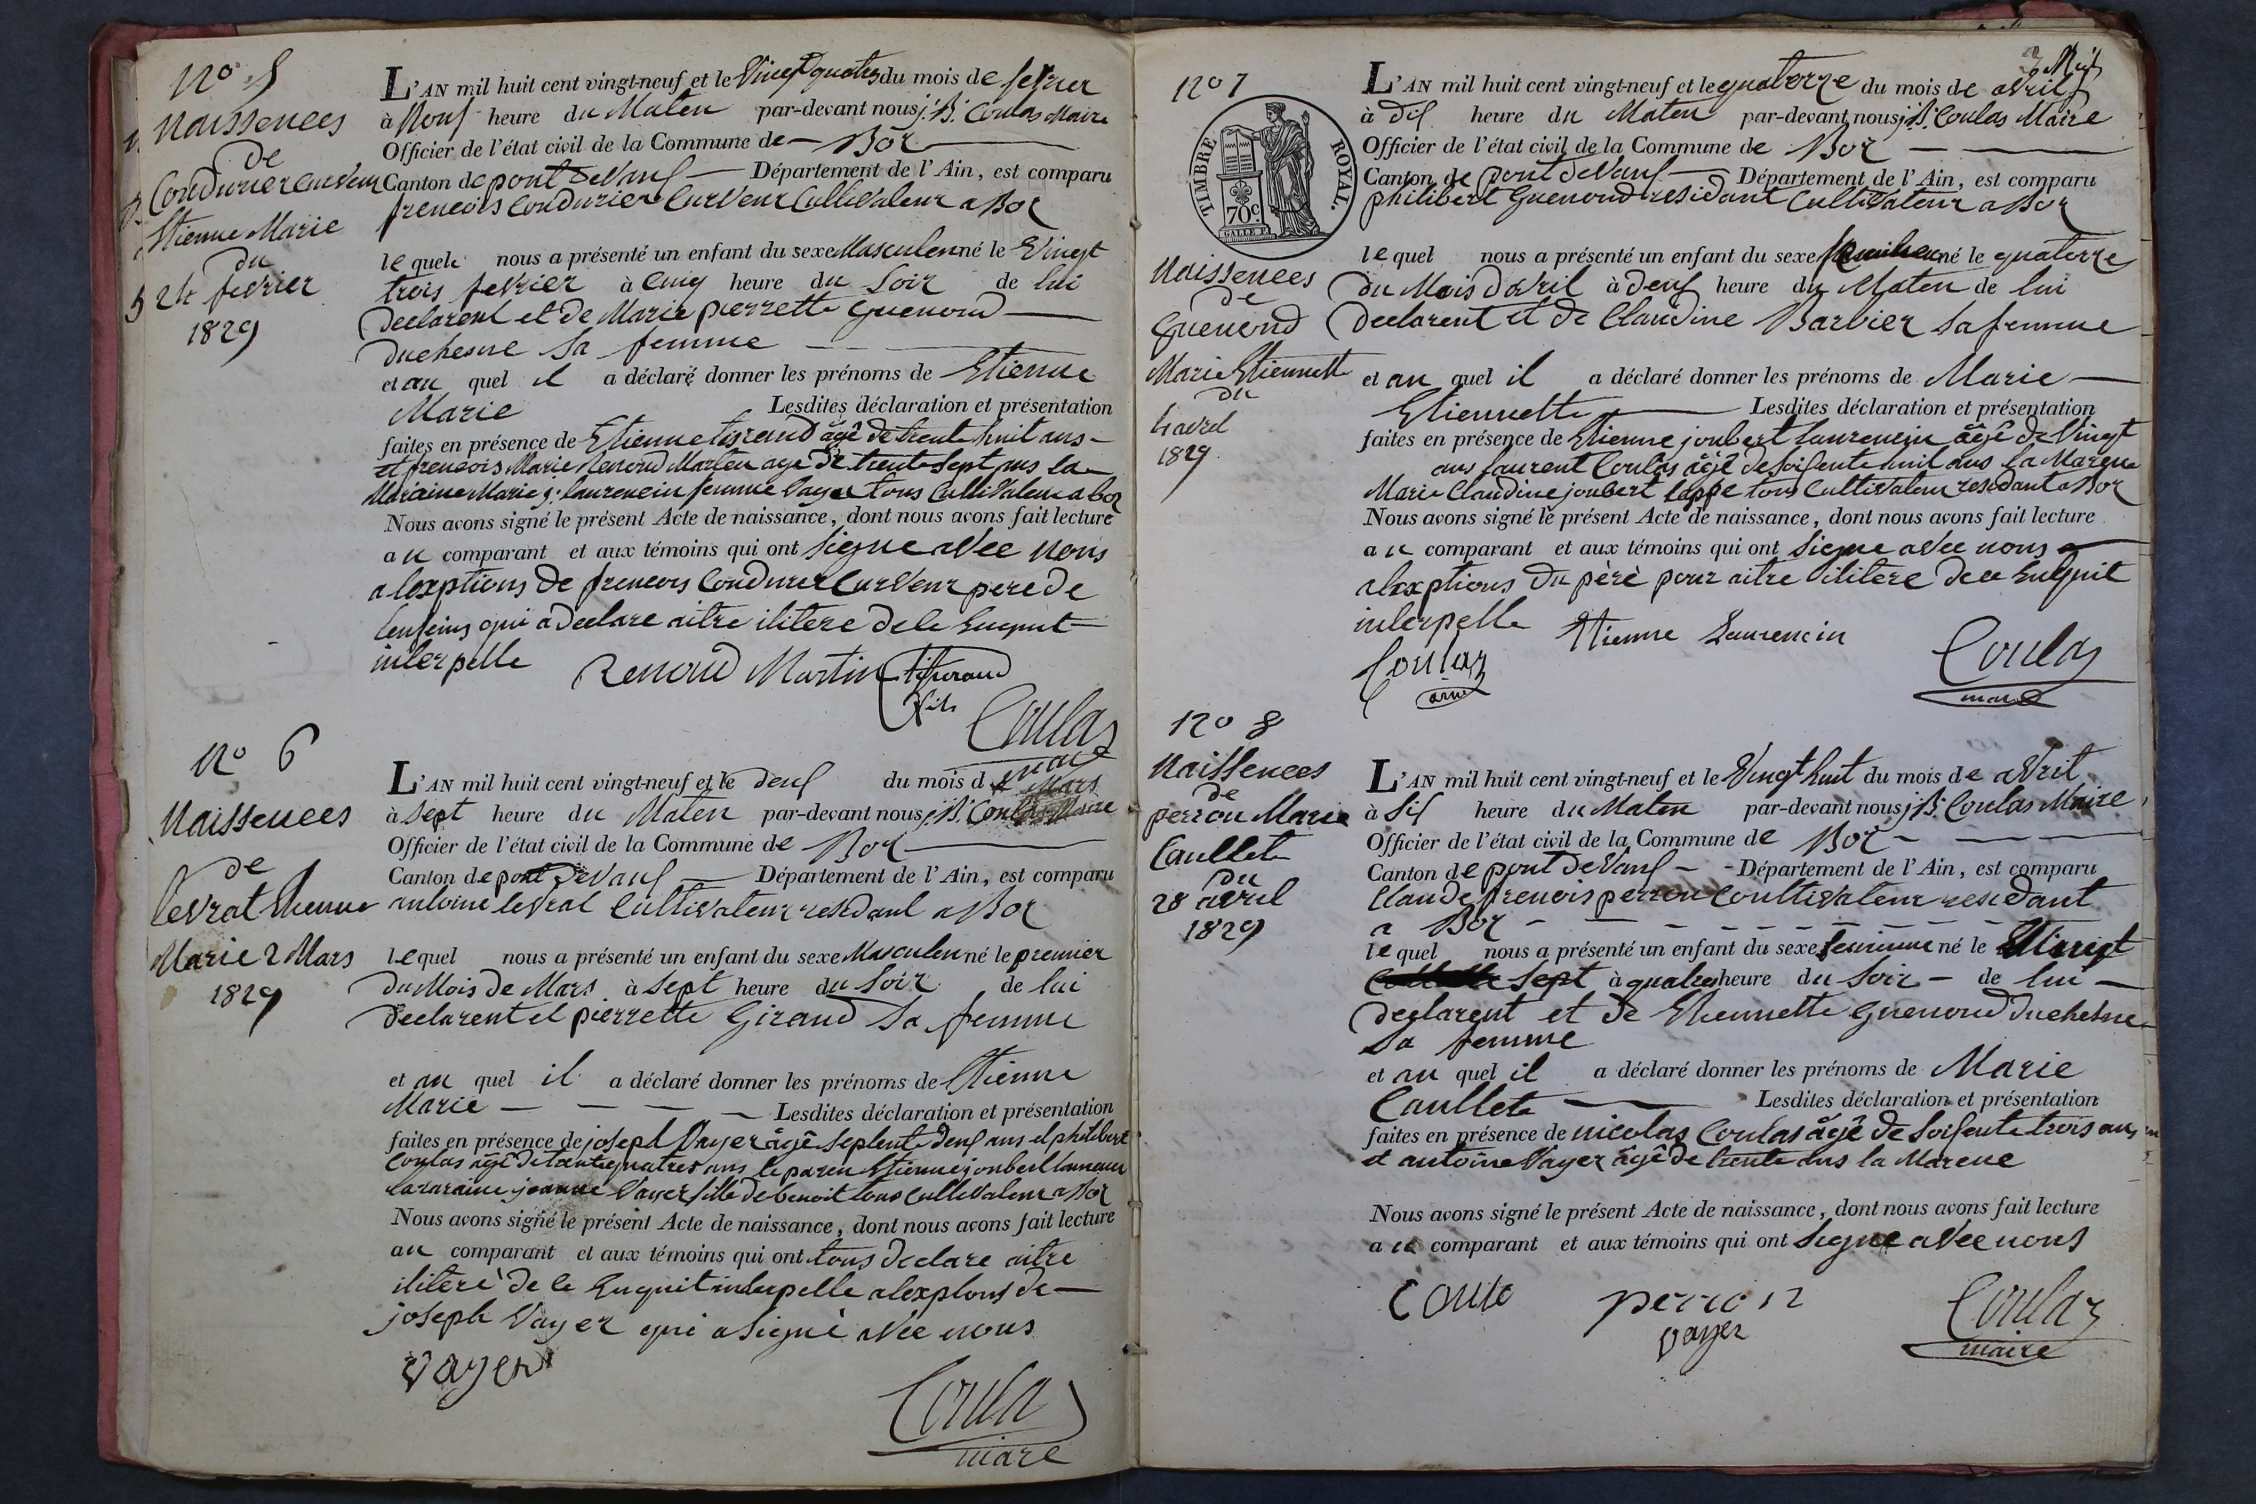 No 5
Naissences
de
Condurier Curveur
Etienne Marie
du
24 fevrier
1829
L'AN mil huit cent vingt-neuf et le Vingt quatre du mois de fevrier
à Nouf heure du Maten par-devant nous j. B. Coulas Maire
Officier de l'état civil de la Commune de Bor
Canton de pont De Vauf Département de l'Ain, est comparu
freneois Condurier Curveur Cultivateur a Bor
le quel nous a présenté un enfant du sexe Masculen né le Vingt
trois fevrier à Cinq heure du Soir de lui
Declarent et de Marie pierrette guenoud
duchesne Sa femme
et au quel il a déclaré donner les prénoms de Etienne
Marie Lesdites déclaration et présentation
faites en présence de Etienne tigraud âgé de trente huit ans
et freneois Marie Renoud Marten age De trente Sept ans la
Maraine Marie j. laurencin femme Vayer tous Cultivateur a bor
Nous avons signé le présent Acte de naissance, dont nous avons fait lecture
au comparant et aux témoins qui ont Signe avec Nous
a lexptions De freneois Condurier Curveur pere de
lenfeins qui a Declare aitre ilitere de le Enquit
interpelle
Renoud Martin
fils
Coulas
maire
No 6
Naissences
de
levrat Etienne
Marie 2 Mars
1829
L'AN mil huit cent vingt-neuf et le deuf du mois de Mars
à Sept heure du Maten par-devant nous j. B. Coulas Maire
Officier de l'état civil de la Commune de Bor
Canton de pont De Vauf Département de l'Ain, est comparu
antoine levrat Cultivateur residant a Bor
le quel nous a présenté un enfant du sexe Masculen né le premier
Du Mois de Mars à Sept heure du Soir de lui
Declarent et pierrette Giraud Sa femme
et au quel il a déclaré donner les prénoms de Etienne
Marie Lesdites déclaration et présentation
faites en présence de joseph Vayer âgé Septente Deuf ans et philibert
Coulas âgé de trante quatres ans le paren Etienne joubert
la maraine jeanne Vayer fille de benoit tous Cultivateur a Bor
Nous avons signé le présent Acte de naissance, dont nous avons fait lecture
au comparant et aux témoins qui ont tous declare aitre
ilitere de le Enquit interpelle a lexptions de
joseph Vayer qui a Signé avec nous
vayer
Coulas
maire
No 7
TIMBRE ROYAL.
70c.
Naissences
de
guenoud
Marie Etiennette
du
14 avrel
1829
L'AN mil huit cent vingt-neuf et le quatorze du mois de avril
à Dif heure du Maten par-devant nous j. B. Coulas Maire
Officier de l'état civil de la Commune de Bor
Canton de pont De Vauf Département de l'Ain, est comparu
philibert guenoud residant Cultivateur a Bor
le quel nous a présenté un enfant du sexe né le quatorze
Du Mois D'avril à Deuf heure du Maten de lui
Declarent et De Claudine Barbier Sa femme
et au quel il a déclaré donner les prénoms de Marie
Etiennette Lesdites déclaration et présentation
faites en présence de Etienne joubert laurencin âgé de Vingt
ans laurent Coulas âgé de Soifente huit ans la Marene
Marie Claudine joubert tous Cultivateur residant a Bor
Nous avons signé le présent Acte de naissance, dont nous avons fait lecture
au comparant et aux témoins qui ont Signe avec nous a
lexptions Du père pour aitre ilitere de le Enquit
interpelle
Etienne Laurencin
Coulas
Coulas
maire
No 8
Naissences
de
perron Marie
Caullete
du
28 avrel
1829
L'AN mil huit cent vingt-neuf et le Vingt huit du mois de avril
à Sif heure du Maten par-devant nous j. B. Coulas Maire
Officier de l'état civil de la Commune de Bor
Canton de pont De Vauf Département de l'Ain, est comparu
Claude frencois perron Coultivateur residant
a Bor
le quel nous a présenté un enfant du sexe feminine né le Vingt
Sept à quatres heure du Soir de lui
Declarent et de Etiennette guenoud Duchesne
Sa femme
et au quel il a déclaré donner les prénoms de Marie
Caullete Lesdites déclaration et présentation
faites en présence de nicolas Coulas âgé de Soifente trois ans
et antoine Vayer âgé de trente ans la Marene
Nous avons signé le présent Acte de naissance, dont nous avons fait lecture
au comparant et aux témoins qui ont Signe avec nous
perron
vayer
Coulas
maire